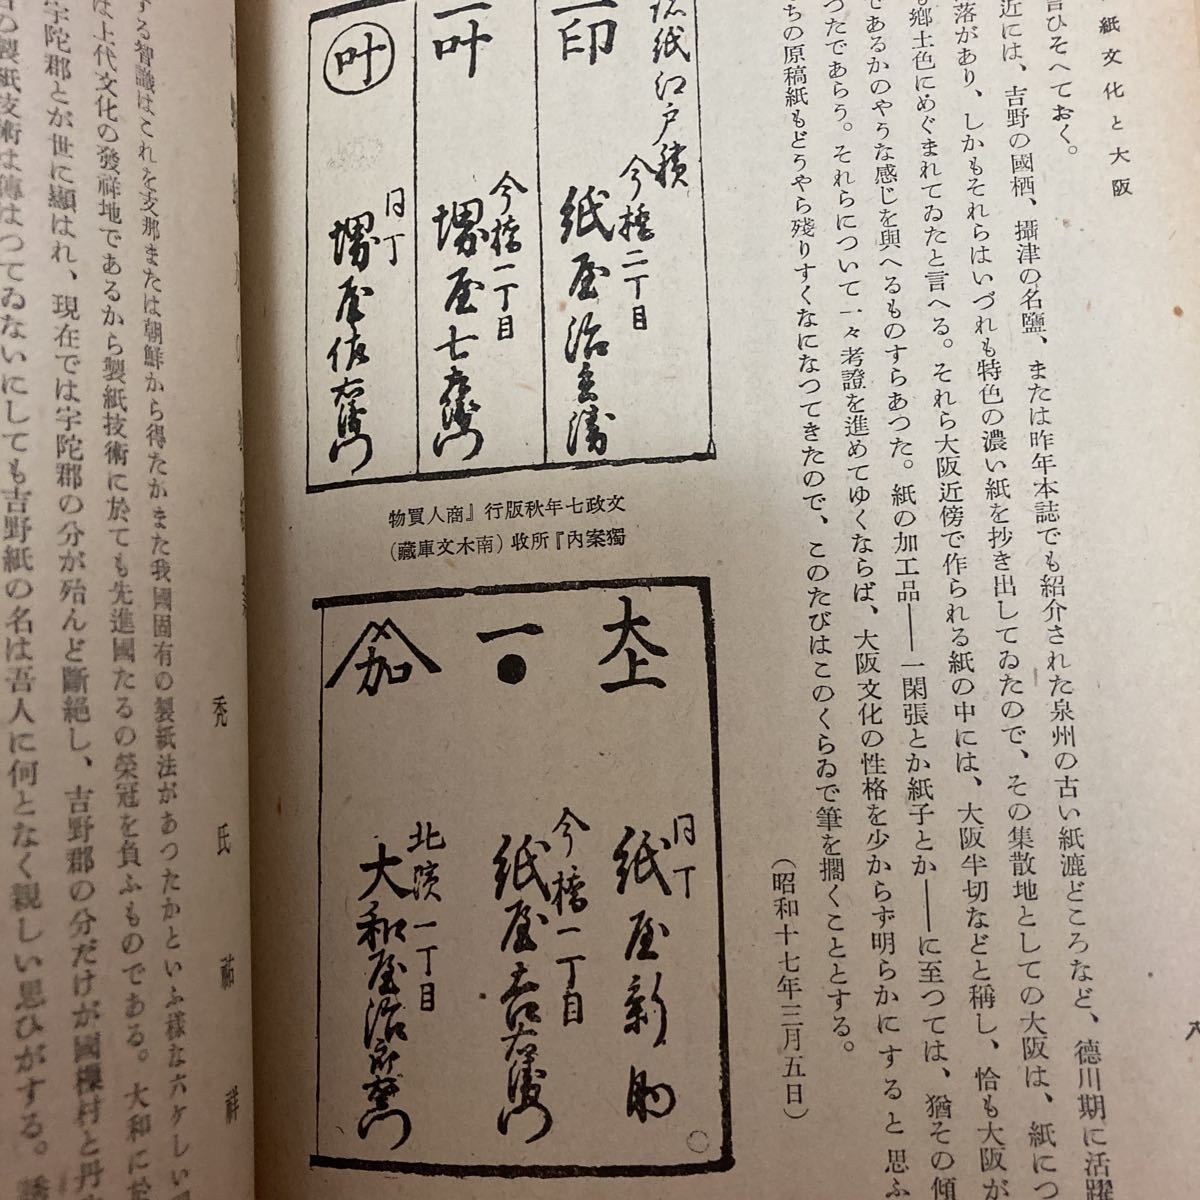 紙文化と大阪
言ひそへておく。
近には、吉野の國栖、攝津の名鹽、または昨年本誌でも紹介された泉州の古い紙漉どころなど、德川期に活躍
落があり、しかもそれらはいづれも特色の濃い紙を抄き出してゐたので、その集散地としての大阪は、紙につ
も鄕土色にめぐまれてゐたと言へる。それら大阪近傍で作られる紙の中には、大阪半切などと稱し、恰も大阪が
であるかのやうな感じを與へるものすらあつた。紙の加工品——一閑張とか紙子とか——に至つては、猶その傾
つたであらう。それらについて一々考證を進めてゆくならば、大阪文化の性格を少からず明らかにすると思ふ
ちの原稿紙もどうやら殘りすくなになつてきたので、このたびはこのくらゐで筆を擱くこととする。
（昭和十七年三月五日）
紙江戸積
印
今橋二丁目
紙屋治兵衛
一叶
今橋一丁目
堺屋七左衛門
叶
同丁
堺屋佐右衛門
文政七年秋版行『商人買物
獨案內』所收（南木文庫藏）
大上
同丁
紙屋新助
一●
今橋一丁目
紙屋吉右衛門
加
北濱一丁目
大和屋治郎右衛門
禿氏祐祥
する智識はこれを支那または朝鮮から得たかまた我國固有の製紙法があつたかといふ樣な六ケしい
は上代文化の發祥地であるから製紙技術に於ても先進國たるの榮冠を負ふものである。大和に於
宇陀郡とが世に顯はれ、現在では宇陀郡の分が殆んど斷絕し、吉野郡の分だけが國樔村と丹
の製紙技術は傳はつてゐないにしても吉野紙の名は吾人に何となく親しい思ひがする。